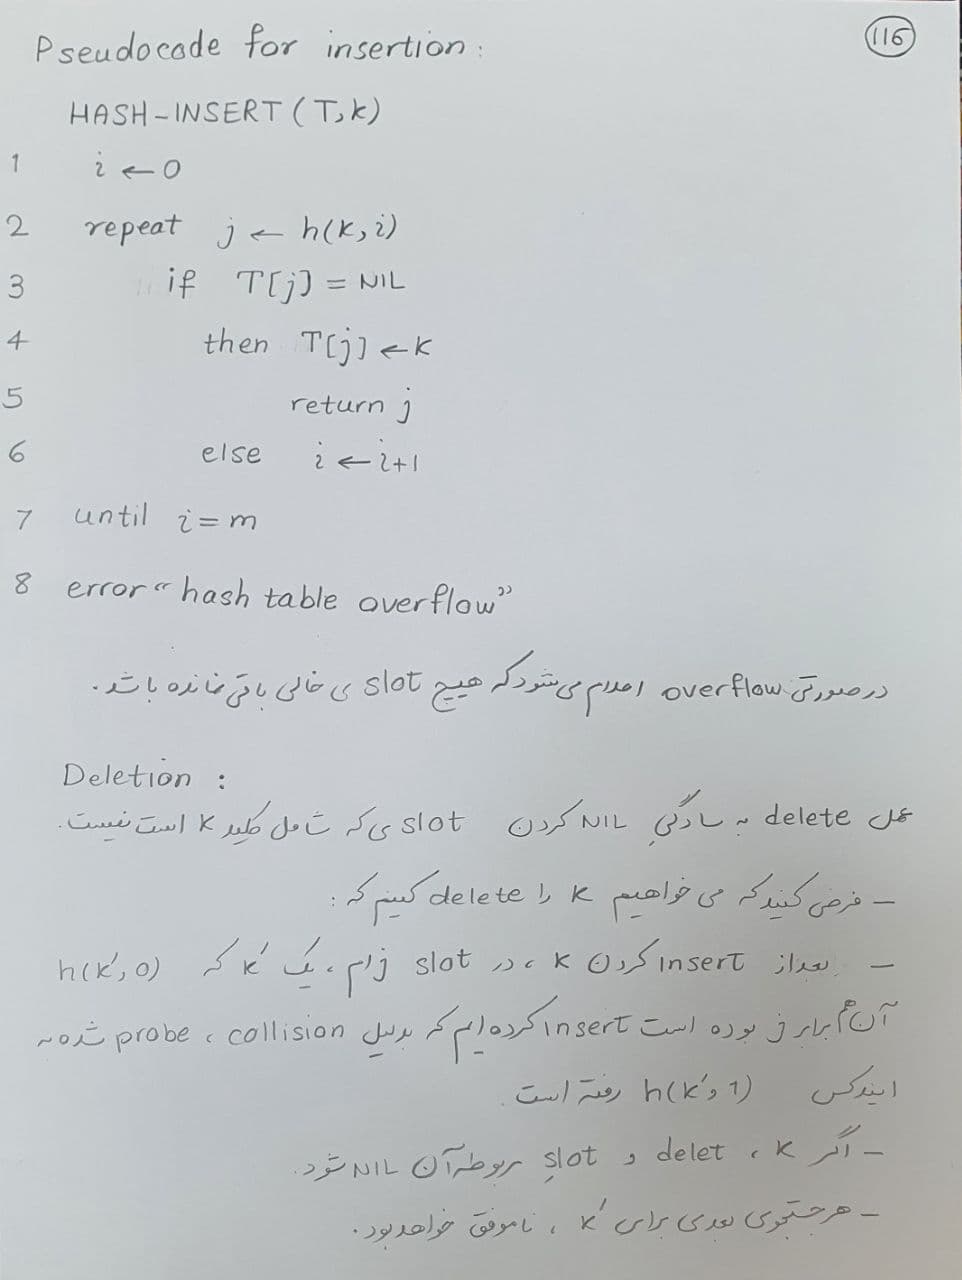 116
Pseudocode for insertion:
HASH-INSERT(T,k)
1 i ← 0
2 repeat j ← h(k,i)
3 if T[j] = NIL
4 then T[j] ← k
5 return j
6 else i ← i+1
7 until i = m
8 error “hash table overflow”
در صورتی overflow اعلام می‌شود که هیچ slot ی خالی باقی نمانده باشد.
Deletion :
عمل delete به سادگیِ NIL کردن slot ی که شامل کلید k است نیست.
– فرض کنید که می خواهیم k را delete کنیم که :
– بعد از insert کردن k، در slot jام، یک k' که h(k',0)
آن هم برابر j بوده است insert کرده‌ایم که بدلیل collision، probe شده به
ایندکس h(k',1) رفته است.
– اگر k، delet و slotِ مربوطه آن NIL شود.
– هر جستجوی بعدی برای k'، ناموفق خواهد بود.